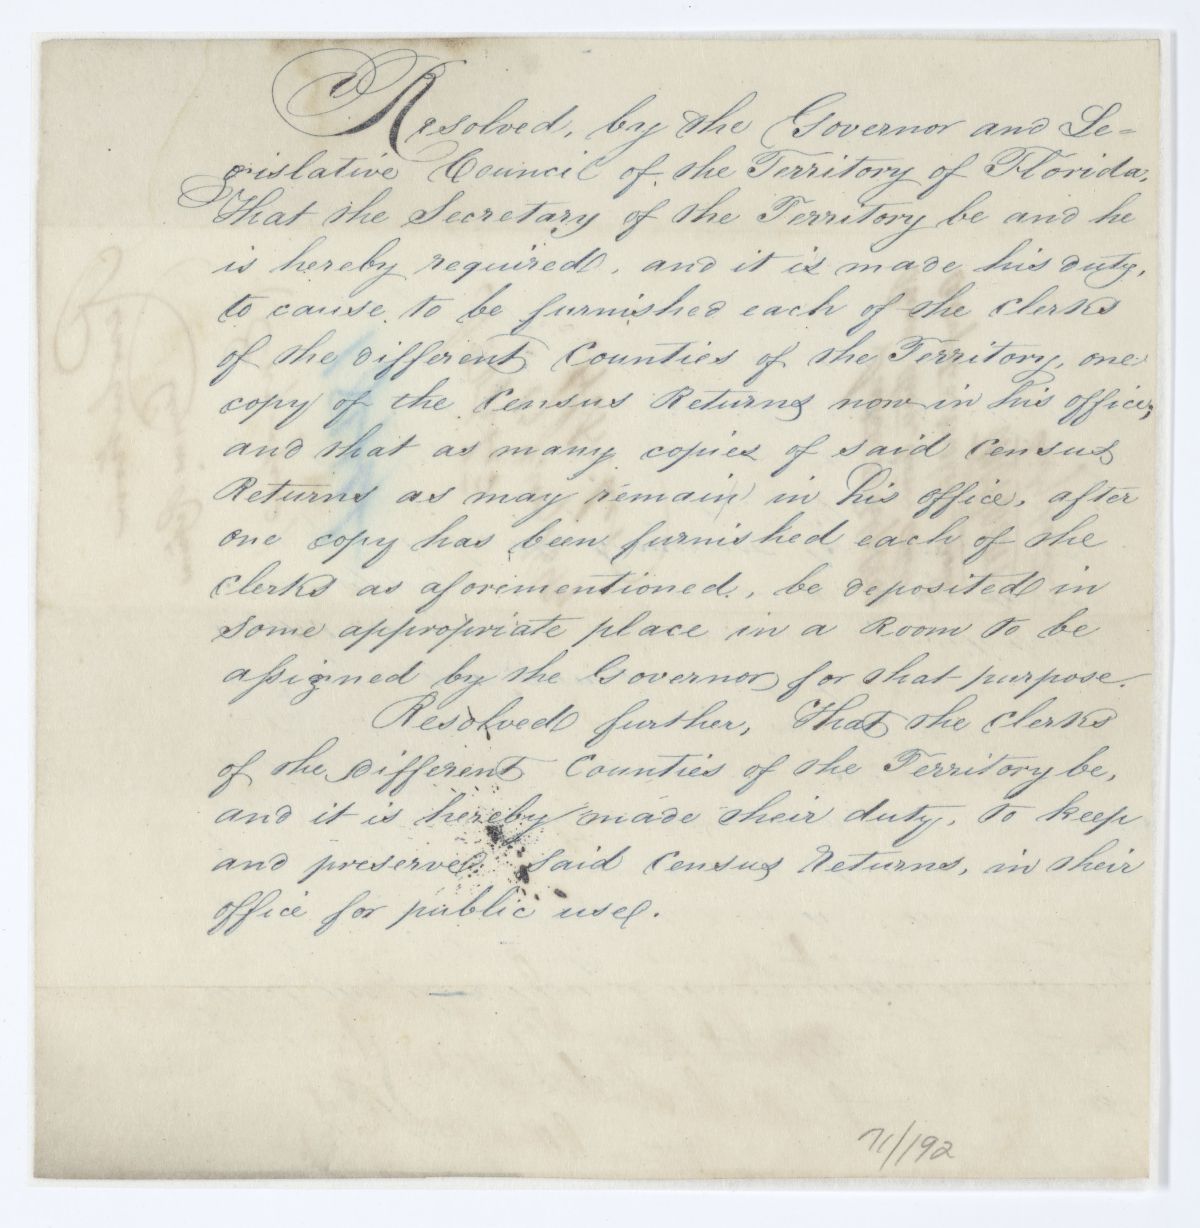 Resolved, by the Governor and Le-
gislative Council of the Territory of Florida,
That the Secretary of the Territory be and he
is hereby required, and it is made his duty,
to cause to be furnished each of the Clerks
of the different Counties of the Territory, one
copy of the Census Returns now in his office;
and that as many copies of said Census
Returns as may remain in his office, after
one copy has been furnished each of the
Clerks as aforementioned, be deposited in
some appropriate place in a Room to be
assigned by the Governor for that purpose.
Resolved further, That the Clerks
of the different Counties of the Territory be,
and it is hereby made their duty, to keep
and preserve said Census Returns, in their
office for public use.
71/192